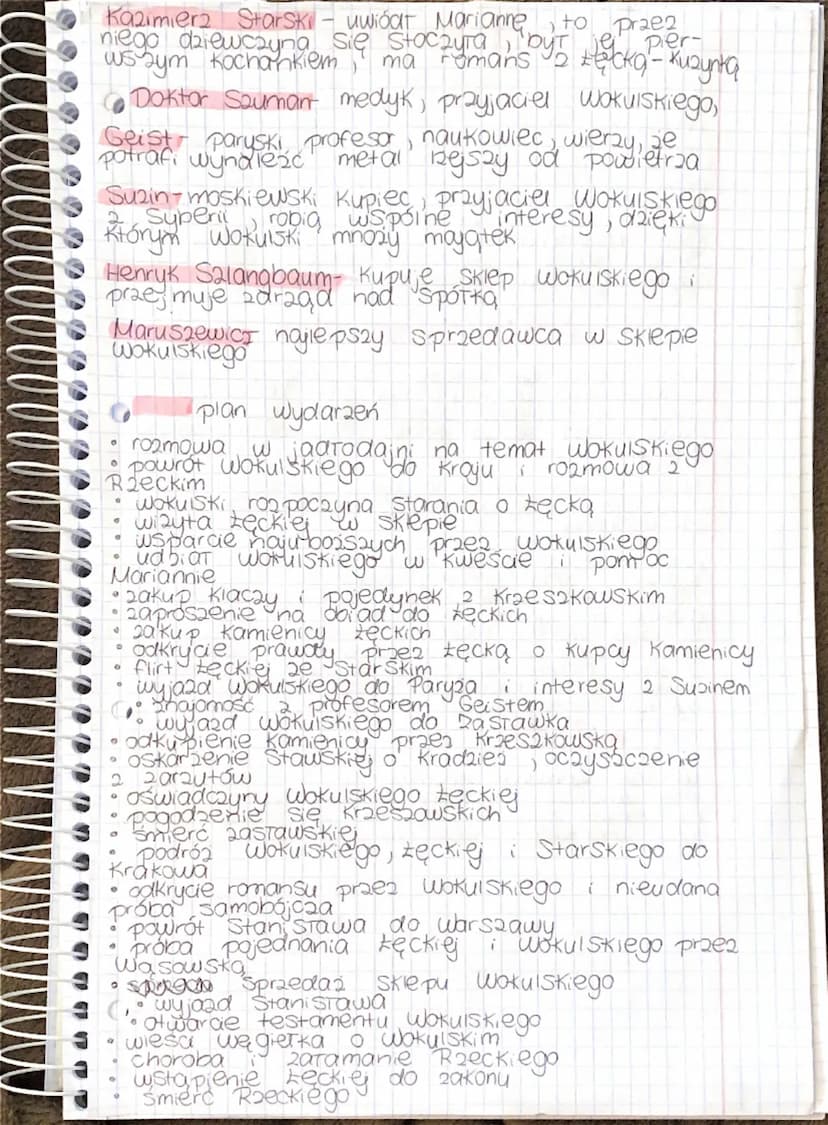 Kazimierz Starski - uwiódł Mariannę, to przez
niego dziewczyna się stoczyła, był jej pier-
wszym kochankiem, ma romans z Łęcką - kuzynką
Doktor Szuman - medyk, przyjaciel Wokulskiego,
Geist - paryski profesor, naukowiec, wierzy, że
potrafi wynaleźć metal lżejszy od powietrza
Suzin - moskiewski kupiec, przyjaciel Wokulskiego
z Syberii, robią wspólne interesy, dzięki
którym Wokulski mnoży majątek
Henryk Szlangbaum - kupuje sklep Wokulskiego i
przejmuje zdrząd nad spółką
Maruszewicz najlepszy sprzedawca w sklepie
Wokulskiego
plan wydarzeń
• rozmowa w jadłodajni na temat Wokulskiego
• powrót Wokulskiego do kraju i rozmowa z
Rzeckim
• Wokulski rozpoczyna starania o Łęcką
• wizyta Łęckiej w sklepie
• wsparcie najuboższych przez Wokulskiego
• udział Wokulskiego w kweście i pomoc
Mariannie
• zakup klaczy i pojedynek z Krzeszkowskim
• zaproszenie na obiad do Łęckich
• zakup kamienicy Łęckich
• odkrycie prawdy przez Łęcką o kupcy kamienicy
• flirt Łęckiej ze Starskim
• wyjazd Wokulskiego do Paryża i interesy z Suzinem
• znajomość z profesorem Geistem
• wyjazd Wokulskiego do Zasławka
• odkupienie kamienicy przez Krzeszkowską
• oskarżenie Stawskiej o kradzież, oczyszczenie
z zarzutów
• oświadczyny Wokulskiego Łęckiej
• pogodzenie się Krzeszowskich
• śmierć zasławskiej
• podróż Wokulskiego, Łęckiej i Starskiego do
Krakowa
• odkrycie romansu przez Wokulskiego i nieudana
próba samobójcza
• powrót Stanisława do Warszawy
• próba pojednania Łęckiej i Wokulskiego przez
Wąsowską
• sprzedaż sklepu Wokulskiego
• wyjazd Stanisława
• otwarcie testamentu Wokulskiego
• wieści węgiełka o Wokulskim
• choroba i załamanie Rzeckiego
• wstąpienie Łęckiej do zakonu
• śmierć Rzeckiego